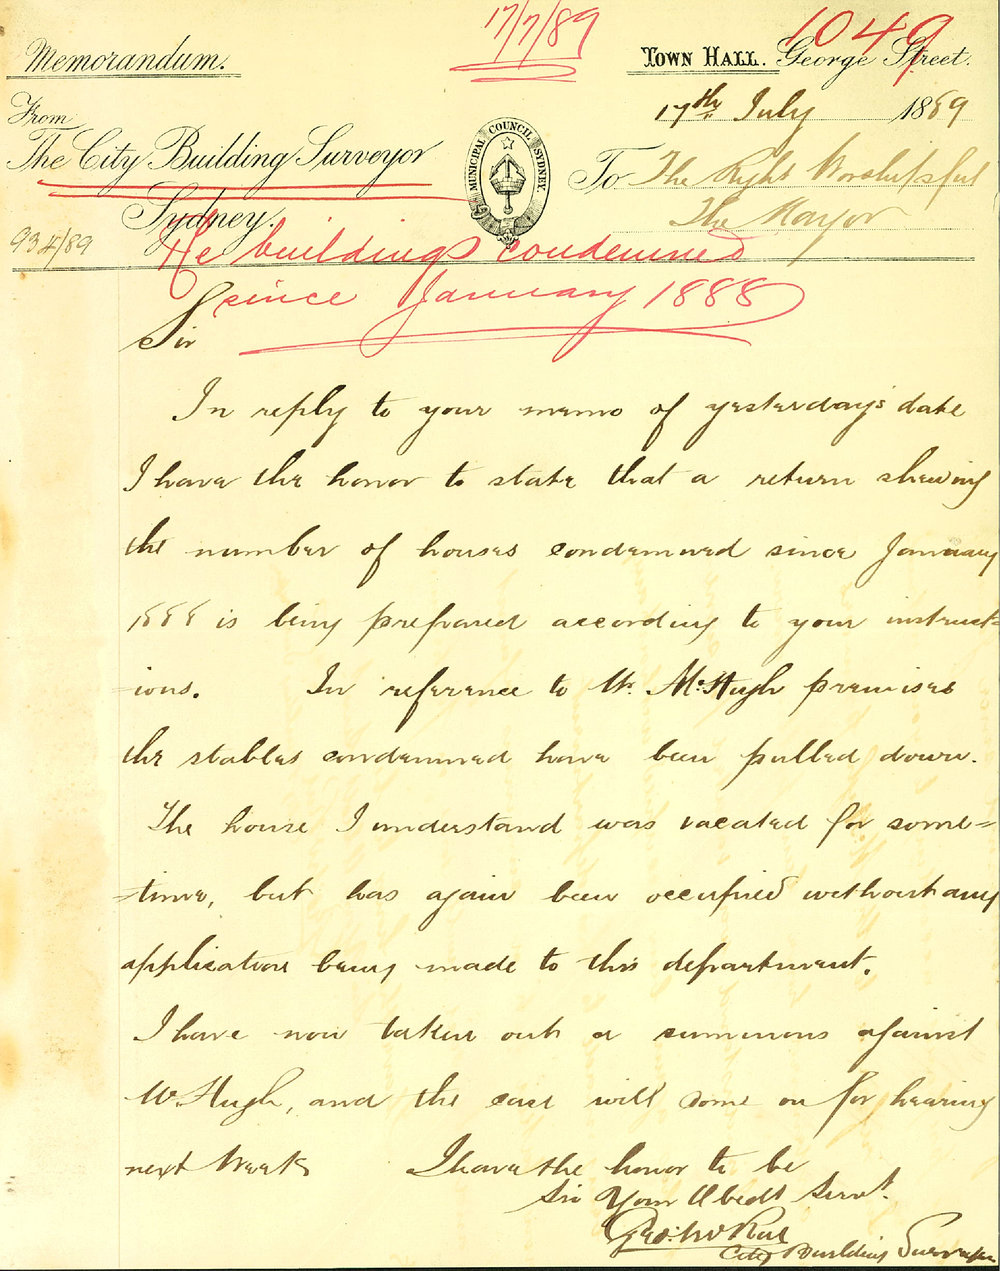 17/7/89
1049
Memorandum.
Town Hall. George Street.
17th July 1889
From
The City Building Surveyor
Sydney.
MUNICIPAL COUNCIL SYDNEY
To The Right Worshipful
The Mayor
934/89
Re buildings condemned
since January 1888
Sir
In reply to your memo of yesterday's date
I have the honor to state that a return shewing
the number of houses condemned since January
1888 is being prepared according to your instruct=
=ions. In reference to Mr. McHugh premises
the stables condemned have been pulled down.
The house I understand was vacated for some=
=time, but has again been occupied without any
application being made to this department.
I have now taken out a summons against
McHugh, and the case will come on for hearing
next Week I have the honor to be
Sir Your Obedt Servt.
Geo:
City Building Surveyor